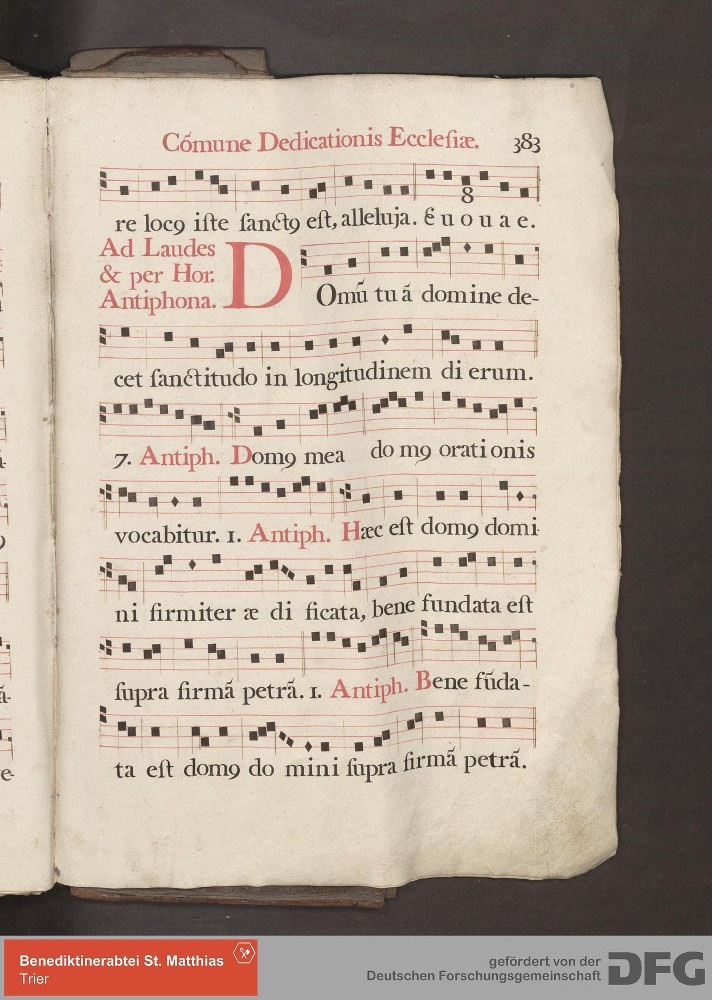 Cõmune Dedicationis Eccleſiæ. 383
8
re locꝯ iſte ſanctꝯ eſt, alleluja. E u o u a e.
Ad Laudes
& per Hor.
Antiphona.
DOmũ tu ã domine de-
cet ſanctitudo in longitudinem di erum.
7. Antiph. Domꝯ mea do mꝯ orationis
vocabitur. 1. Antiph. Hæc eſt domꝯ domi-
ni firmiter æ di ficata, bene fundata eſt
ſupra firmã petrã. 1. Antiph. Bene fũda-
ta eſt domꝯ do mini ſupra firmã petrã.
Benediktinerabtei St. Matthias
Trier
gefördert von der
Deutschen Forschungsgemeinschaft
DFG